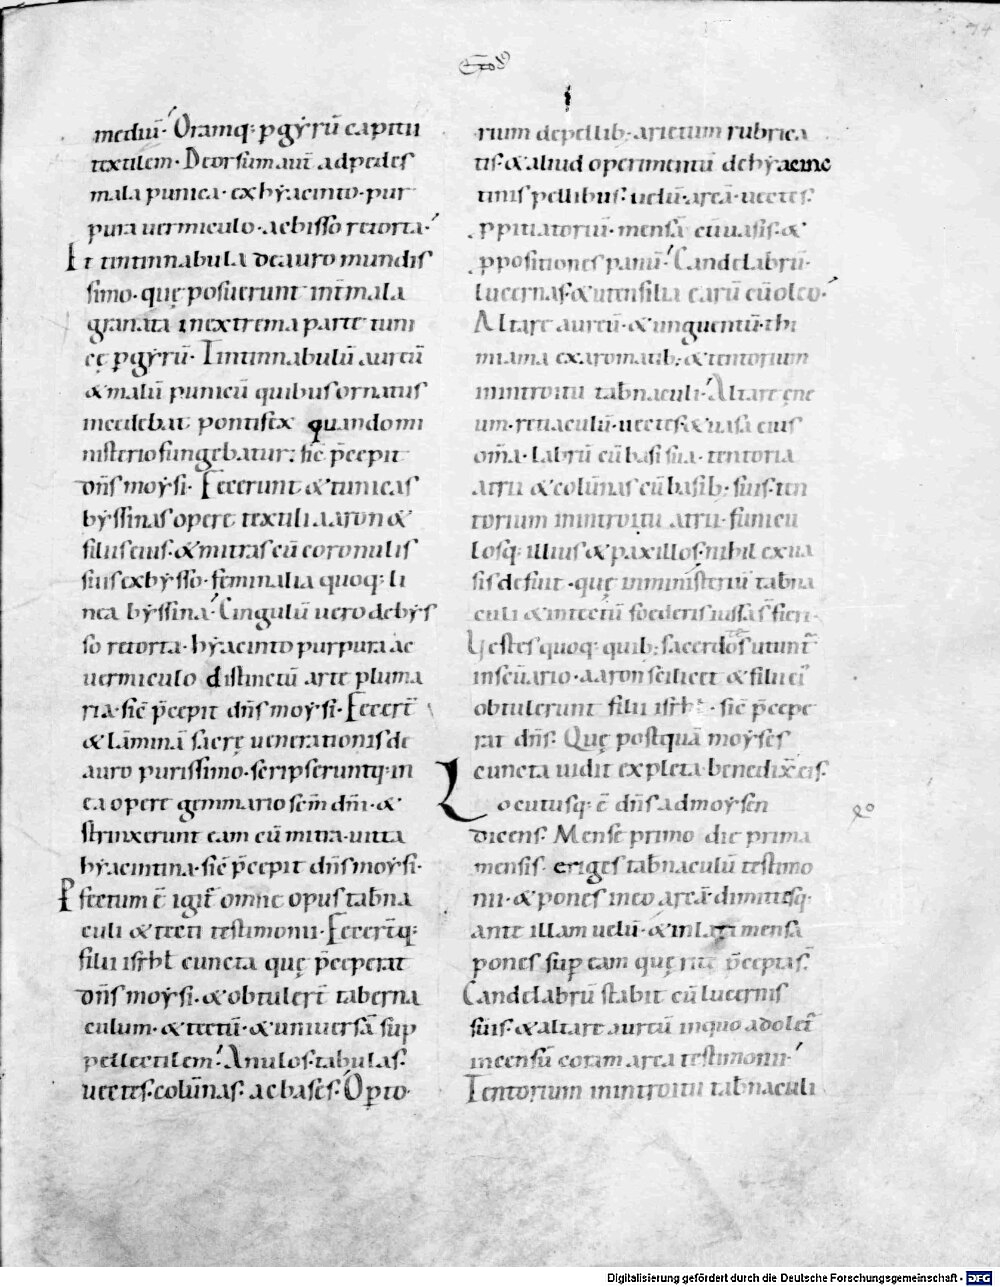 mediū· Oramq; ꝑ gẏrū capitii
textilem· Deorsum aut̄ ad pedes
mala punica· ex hẏacinto· pur
pura uermiculo· ac bisso retorta·
Et tintinnabula de auro mundis
simo· quę posuerunt int̄ mala
granata in extrema parte tuni
cę ꝑ gẏrū· Tintinnabulū aureū
& malū punicū quibus ornatus
incedebat pontifex quando mi
nisterio fungebatur; sic̄ p̄cepit
dn̄s moẏsi· Fecerunt & tunicas
bẏssinas opere textili aaron &
filiis eius· & mitras cū coronulis
suis ex bẏsso· feminalia quoq; li
nea bẏssina· Cingulū uero de bẏs
so retorta· hẏacinto purpura ac
uermiculo distinctū arte pluma
ria· sic̄ p̄cepit dn̄s moẏsi· Fecer̄t
& lāminā sacrę uenerationis de
auro purissimo· scripseruntq; in
ea opere gemmario sc̄m dn̄i· &
strinxerunt eam cū mitra· uitta
hẏacintina· sic̄ p̄cepit dn̄s moẏsi·
Pfectum ē igit̄ omne opus tab̄na
culi & tecti testimonii· Fecer̄tq;
filii isrhl̄ cuncta quę p̄ceperat
dn̄s moẏsi· & obtuler̄t taberna
culum· & tectū· & uniuersā sup
pellectilem· Anulos· tabulas·
uectes· colūnas· ac bases· Opto
rium de pellib; arietum rubrica
tis· & aliud operimentū de hẏacinc
tinis pellibus· uelū· arcā· uectes·
ꝓpitiatoriū· mensā cū uasis· &
ꝓpositionis panū· Candelabrū·
lucernas· & utensilia earū cū oleo·
Altare aureū· & unguentū· thi
miama ex aromatib; & tentorium
in introitu tab̄naculi· Altare ęne
um· retiaculū· uectes· & uasa eius
om̄a· labrū cū basi sua· tentoria
atrii & colūnas cū basib; suis· ten
torium in introitu atrii· funicu
losq; illius & paxillos· nihil ex ua
sis defuit· quę in ministeriū tab̄na
culi & in tectū foederis iussa s̄ fieri·
Uestes quoq; quib; sacerdotes utunt̄
in sc̄uario· aaron scilicet & filii ei
obtulerunt filii isrhl̄· sic̄ p̄cepe
rat dn̄s· Quę postquā moẏses
cuncta uidit expleta· benedix̄ eis·
Locutusq; ē dn̄s ad moẏsen
dicens· Mense primo die prima
mensis· eriges tab̄naculū testimo
nii· & pones in eo arcā· dimittesq;
ante illam uelū· & inlata mensa
pones sup eam quę rite p̄cepta s̄·
Candelabrū stabit cū lucernis
suis· & altare aureū in quo adolet̄
incensū coram arca testimonii·
Tentorium in introitu tab̄naculi
Digitalisierung gefördert durch die Deutsche Forschungsgemeinschaft - DFG